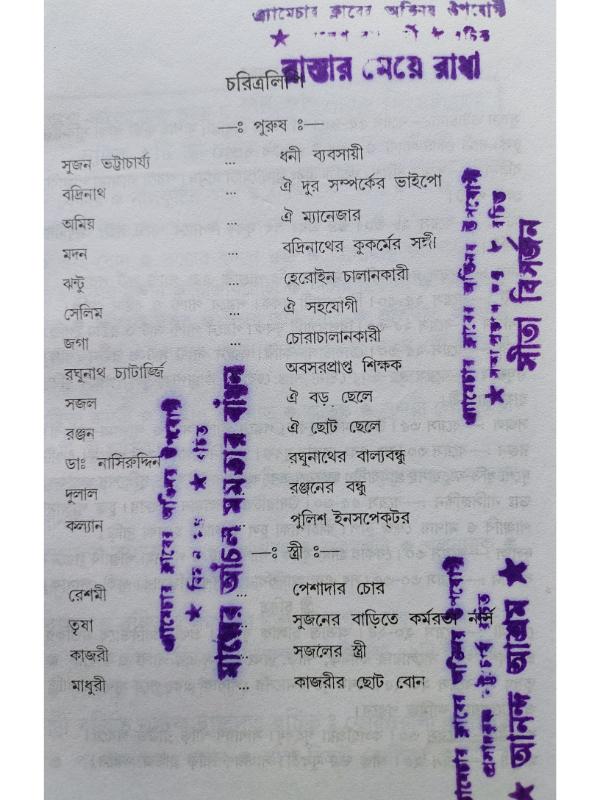 এ্যামেচার ক্লাবের অভিনয় উপযোগী
★ রচিত
রাস্তার মেয়ে রাধা
চরিত্রলিপি
—ঃ পুরুষ ঃ—
সৃজন ভট্টাচার্য্য ... ধনী ব্যবসায়ী
বদ্রিনাথ ... ঐ দুর সম্পর্কের ভাইপো
অমিয় ... ঐ ম্যানেজার
মদন ... বদ্রিনাথের কুকর্মের সঙ্গী
ঝন্টু ... হেরোইন চালানকারী
সেলিম ... ঐ সহযোগী
জগা ... চোরাচালানকারী
রঘুনাথ চ্যাটার্জ্জি অবসরপ্রাপ্ত শিক্ষক
সজল ... ঐ বড় ছেলে
রঞ্জন ... ঐ ছোট ছেলে
ডাঃ নাসিরুদ্দিন রঘুনাথের বাল্যবন্ধু
দুলাল রঞ্জনের বন্ধু
কল্যান পুলিশ ইনসপেক্টর
—ঃ স্ত্রী ঃ—
রেশমী ... পেশাদার চোর
তৃষা সুজনের বাড়িতে কর্মরতা নার্স
কাজরী ... সজলের স্ত্রী
মাধুরী ... কাজরীর ছোট বোন
এ্যামেচার ক্লাবের অভিনয় উপযোগী
★ রচিত
মায়ের আঁচল মমতার বাঁধন
এ্যামেচার ক্লাবের অভিনয় উপযোগী
★ রচিত
সীতা বিসর্জন
এ্যামেচার ক্লাবের অভিনয় উপযোগী
রচিত
★ আনন্দ আশ্রম ★